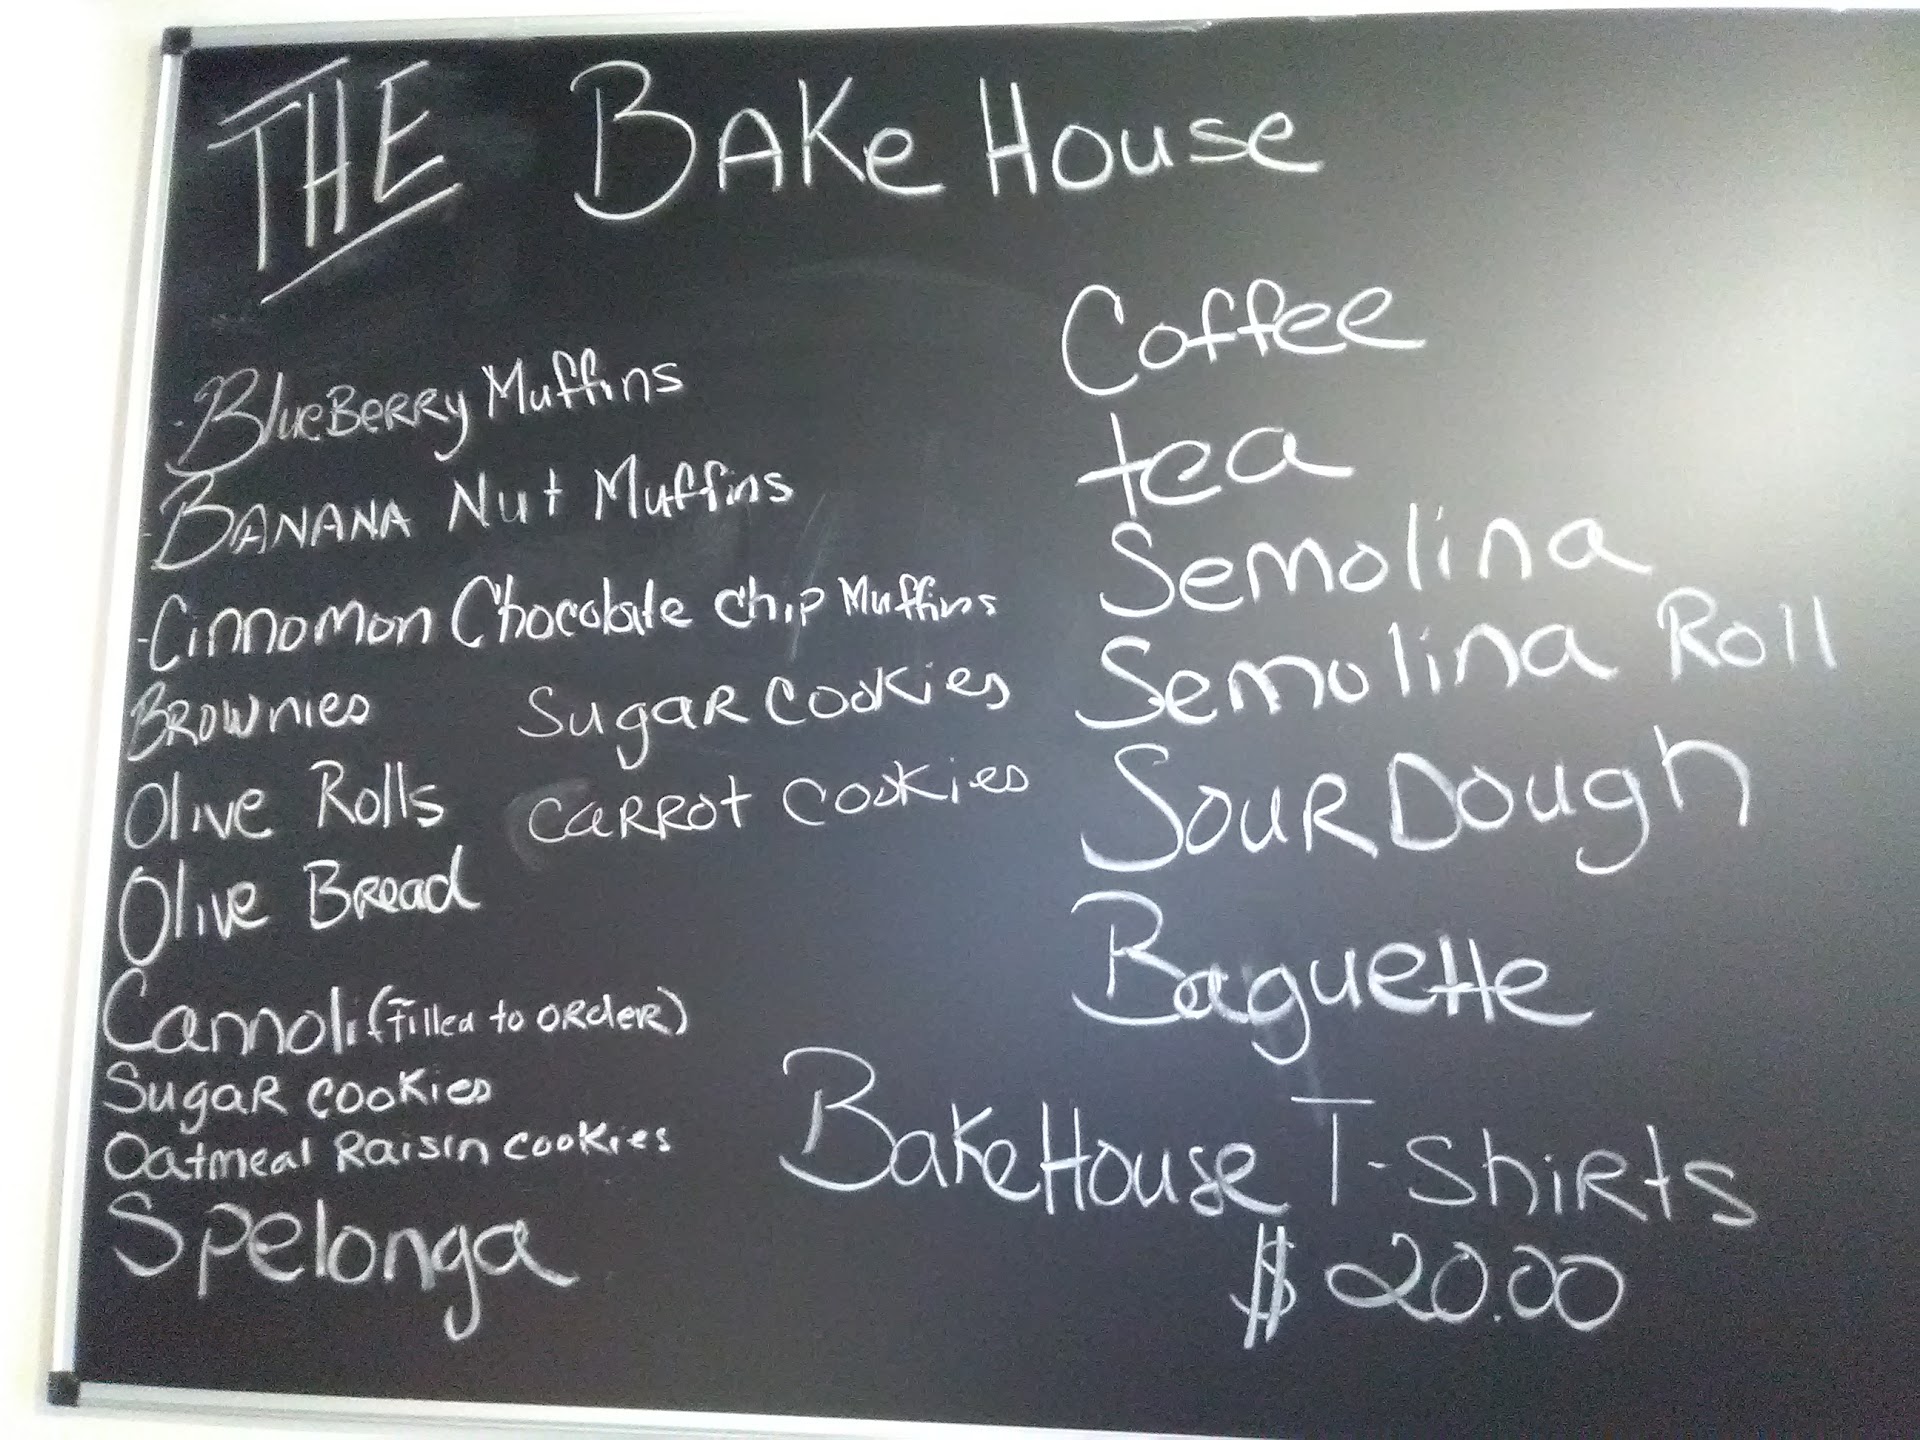 THE BAKe House
-BlueBeRRy Muffins
-BANANA Nut Muffins
-Cinnomon Chocolate Chip Muffins
BROWNies
Olive Rolls
Olive BRead
Cannoli (filled to ORdeR)
SugaR cookies
Oatmeal Raisin cookies
Spelonga
SugaR Cookies
CaRRot Cookies
Coffee
tea
Semolina
Semolina Roll
SouRDough
Baguette
BakeHouse T-ShiRts
$20.00